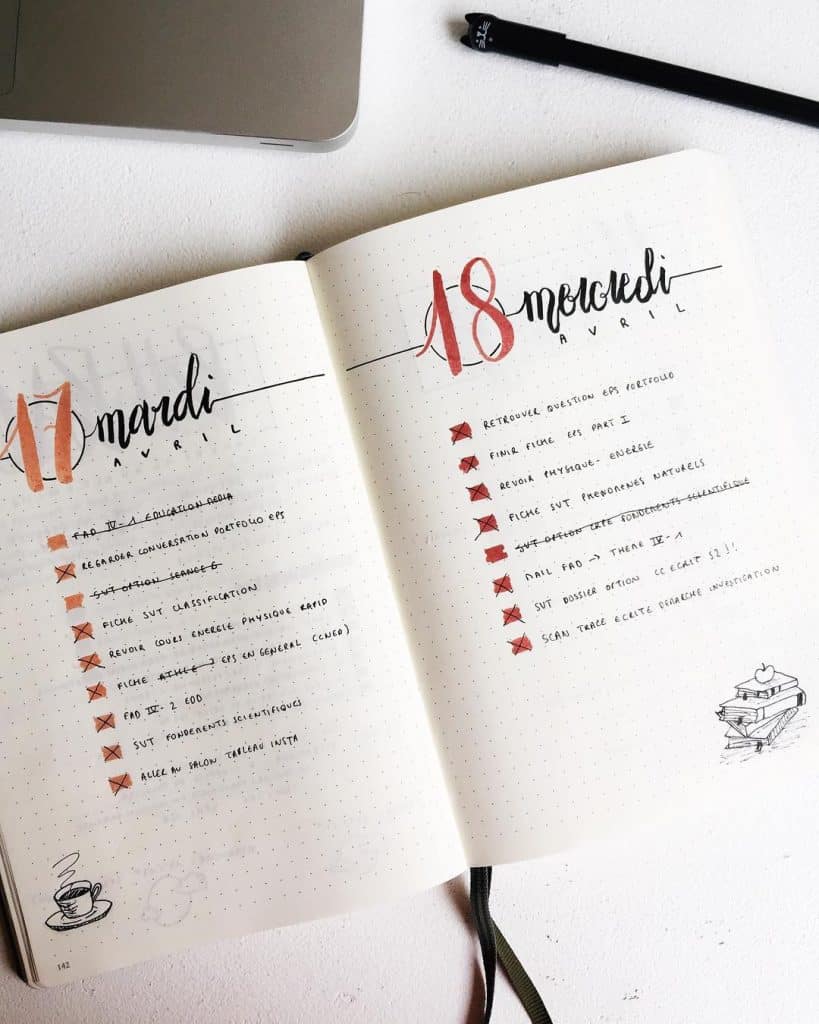 17 mardi
AVRIL
FAD IV-1 EDUCATION MEDIA
REGARDER CONVERSATION PORTFOLIO EPS
SVT OPTION SEANCE 6
FICHE SVT CLASSIFICATION
REVOIR COURS ENERGIE PHYSIQUE RAPID
FICHE ATHLE ? EPS EN GENERAL (CNED)
FAD IV-2 EDD
SVT FONDEMENTS SCIENTIFIQUES
ALLER AU SALON TABLEAU INSTA
142
18 mercredi
AVRIL
RETROUVER QUESTION EPS PORTFOLIO
FINIR FICHE EPS PART I
REVOIR PHYSIQUE - ENERGIE
FICHE SVT PHENOMENES NATURELS
SVT OPTION CRPE FONDEMENTS SCIENTIFIQUE
MAIL FAD → THEME IV-1
SVT DOSSIER OPTION CC ECRIT S2 !!
SCAN TRACE ECRITE DEMARCHE INVESTIGATION